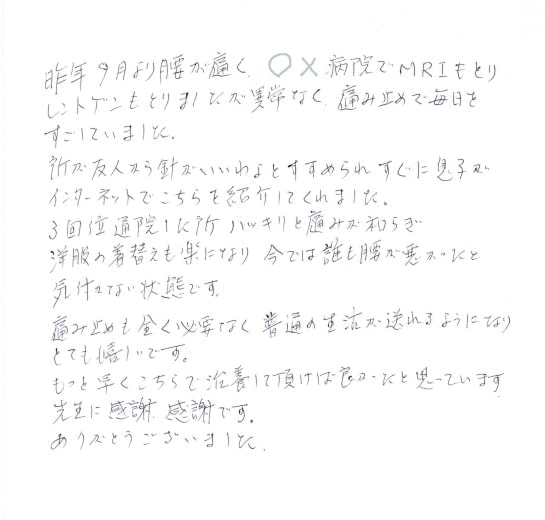 昨年9月より腰が痛く、〇×病院でMRIもとり
レントゲンもとりましたが異常なく、痛み止めで毎日を
すごしていました。
所が友人から針がいいわよとすすめられすぐに息子が
インターネットでこちらを紹介してくれました。
3回位通院した所 ハッキリと痛みが和らぎ
洋服の着替えも楽になり 今では誰も腰が悪かったと
気付かない状態です。
痛み止めも全く必要なく普通の生活が送れるようになり
とても嬉しいです。
もっと早くこちらで治養して頂けば良かったと思っています
先生に感謝、感謝です。
ありがとうございました。